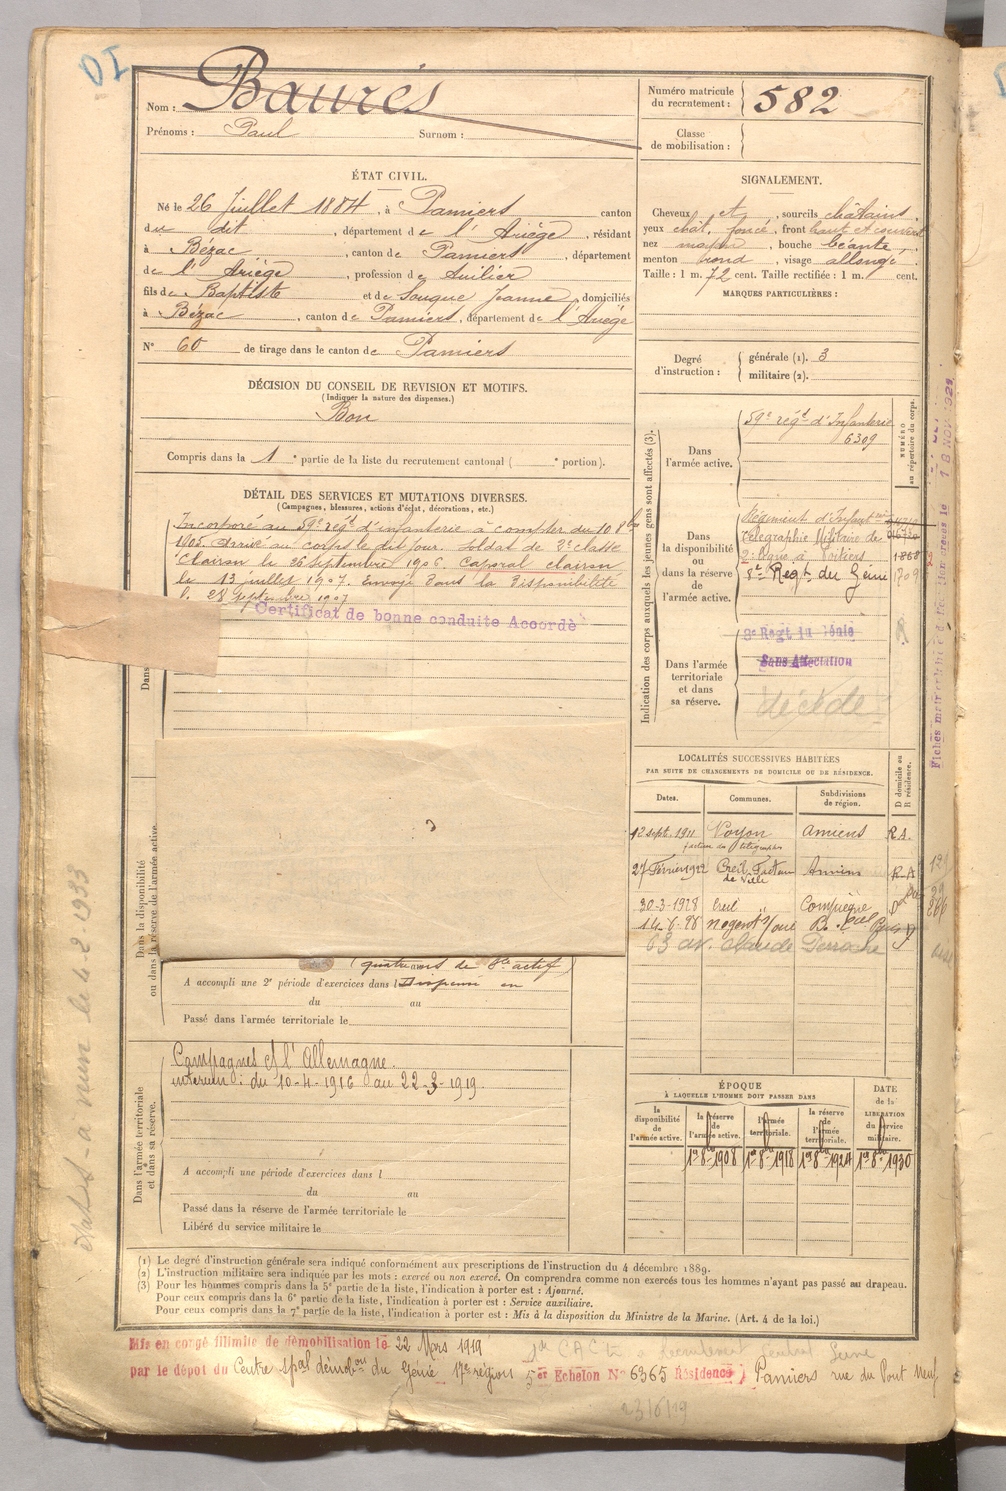 DI
Nom : Baurès
Prénoms : Paul Surnom :
Numéro matricule
du recrutement : 582
Classe
de mobilisation :
ÉTAT CIVIL.
Né le 26 Juillet 1884, à Pamiers canton
du dit, département de l'Ariège, résidant
à Bézac, canton de Pamiers, département
de l'Ariège, profession de
fils de Baptiste et de Souque Jeanne, domiciliés
à Bézac, canton de Pamiers, département de l'Ariège
N° 60 de tirage dans le canton de Pamiers
SIGNALEMENT.
Cheveux et, sourcils châtains,
yeux chât. foncé, front haut et couvert
nez moyen, bouche béante,
menton rond, visage allongé.
Taille : 1 m. 72 cent. Taille rectifiée : 1 m. cent.
MARQUES PARTICULIÈRES :
Degré
d'instruction :
générale (1). 3
militaire (2).
DÉCISION DU CONSEIL DE REVISION ET MOTIFS.
(Indiquer la nature des dispenses.)
Bon
Compris dans la 1e partie de la liste du recrutement cantonal ( e portion).
DÉTAIL DES SERVICES ET MUTATIONS DIVERSES.
(Campagnes, blessures, actions d'éclat, décorations, etc.)
Incorporé au 59e régt d'infanterie à compter du 10 8bre
1905. Arrivé au corps le dit jour. Soldat de 2e classe
Clairon le 26 septembre 1906. Caporal clairon
le 13 juillet 1907. Envoyé dans la disponibilité
le 28 septembre 1907
Certificat de bonne conduite Accordé
Dans
Dans la disponibilité
ou dans la réserve de l'armée active.
A accompli une 2e période d'exercices dans l
du au
Passé dans l'armée territoriale le
Dans l'armée territoriale
et dans sa réserve.
Campagnes ct l'Allemagne.
intérieur : du 10-4-1916 au 22-3-1919.
A accompli une période d'exercices dans l
du au
Passé dans la réserve de l'armée territoriale le
Libéré du service militaire le
Indication des corps auxquels les jeunes gens sont affectés (3).
NUMÉRO
au répertoire du corps.
Dans
l'armée active.
59e régt d'Infanterie
6309
Dans
la disponibilité
ou
dans la réserve
de
l'armée active.
Régiment d'Infanterie
télégraphie Militaire de
2e ligne à Poitiers 1868
8e Regt du Génie 1709
Dans l'armée
territoriale
et dans
sa réserve.
8e Regt du Génie
Sans Affectation
décédé
LOCALITÉS SUCCESSIVES HABITÉES
PAR SUITE DE CHANGEMENTS DE DOMICILE OU DE RÉSIDENCE.
Dates. Communes. Subdivisions
de région. D domicile ou
R résidence.
12 sept. 1911 Noyon Amiens R.A.
27 Février 1922 Creil Facteur Amiens R.A
de Ville
30-3-1928 Creil " Compiègne
14-6-28 Nogent s/Oise
63 av. Claude
ÉPOQUE
À LAQUELLE L'HOMME DOIT PASSER DANS
DATE
de la
LIBÉRATION
du service
militaire.
la
disponibilité
de
l'armée active.
la réserve
de
l'armée active.
l'armée
territoriale.
la réserve
de
l'armée
territoriale.
1er 8bre 1908 1er 8bre 1918 1er 8bre 1924 1er 8bre 1930
(1) Le degré d'instruction générale sera indiqué conformément aux prescriptions de l'instruction du 4 décembre 1889.
(2) L'instruction militaire sera indiquée par les mots : exercé ou non exercé. On comprendra comme non exercés tous les hommes n'ayant pas passé au drapeau.
(3) Pour les hommes compris dans la 5e partie de la liste, l'indication à porter est : Ajourné.
Pour ceux compris dans la 6e partie de la liste, l'indication à porter est : Service auxiliaire.
Pour ceux compris dans la 7e partie de la liste, l'indication à porter est : Mis à la disposition du Ministre de la Marine. (Art. 4 de la loi.)
Mis en congé illimité de démobilisation le 22 Mars 1919
par le dépot du Centre spal démobon du Génie 17e région 5er Echelon N° 6365 Résidence) Pamiers rue du Pont Neuf